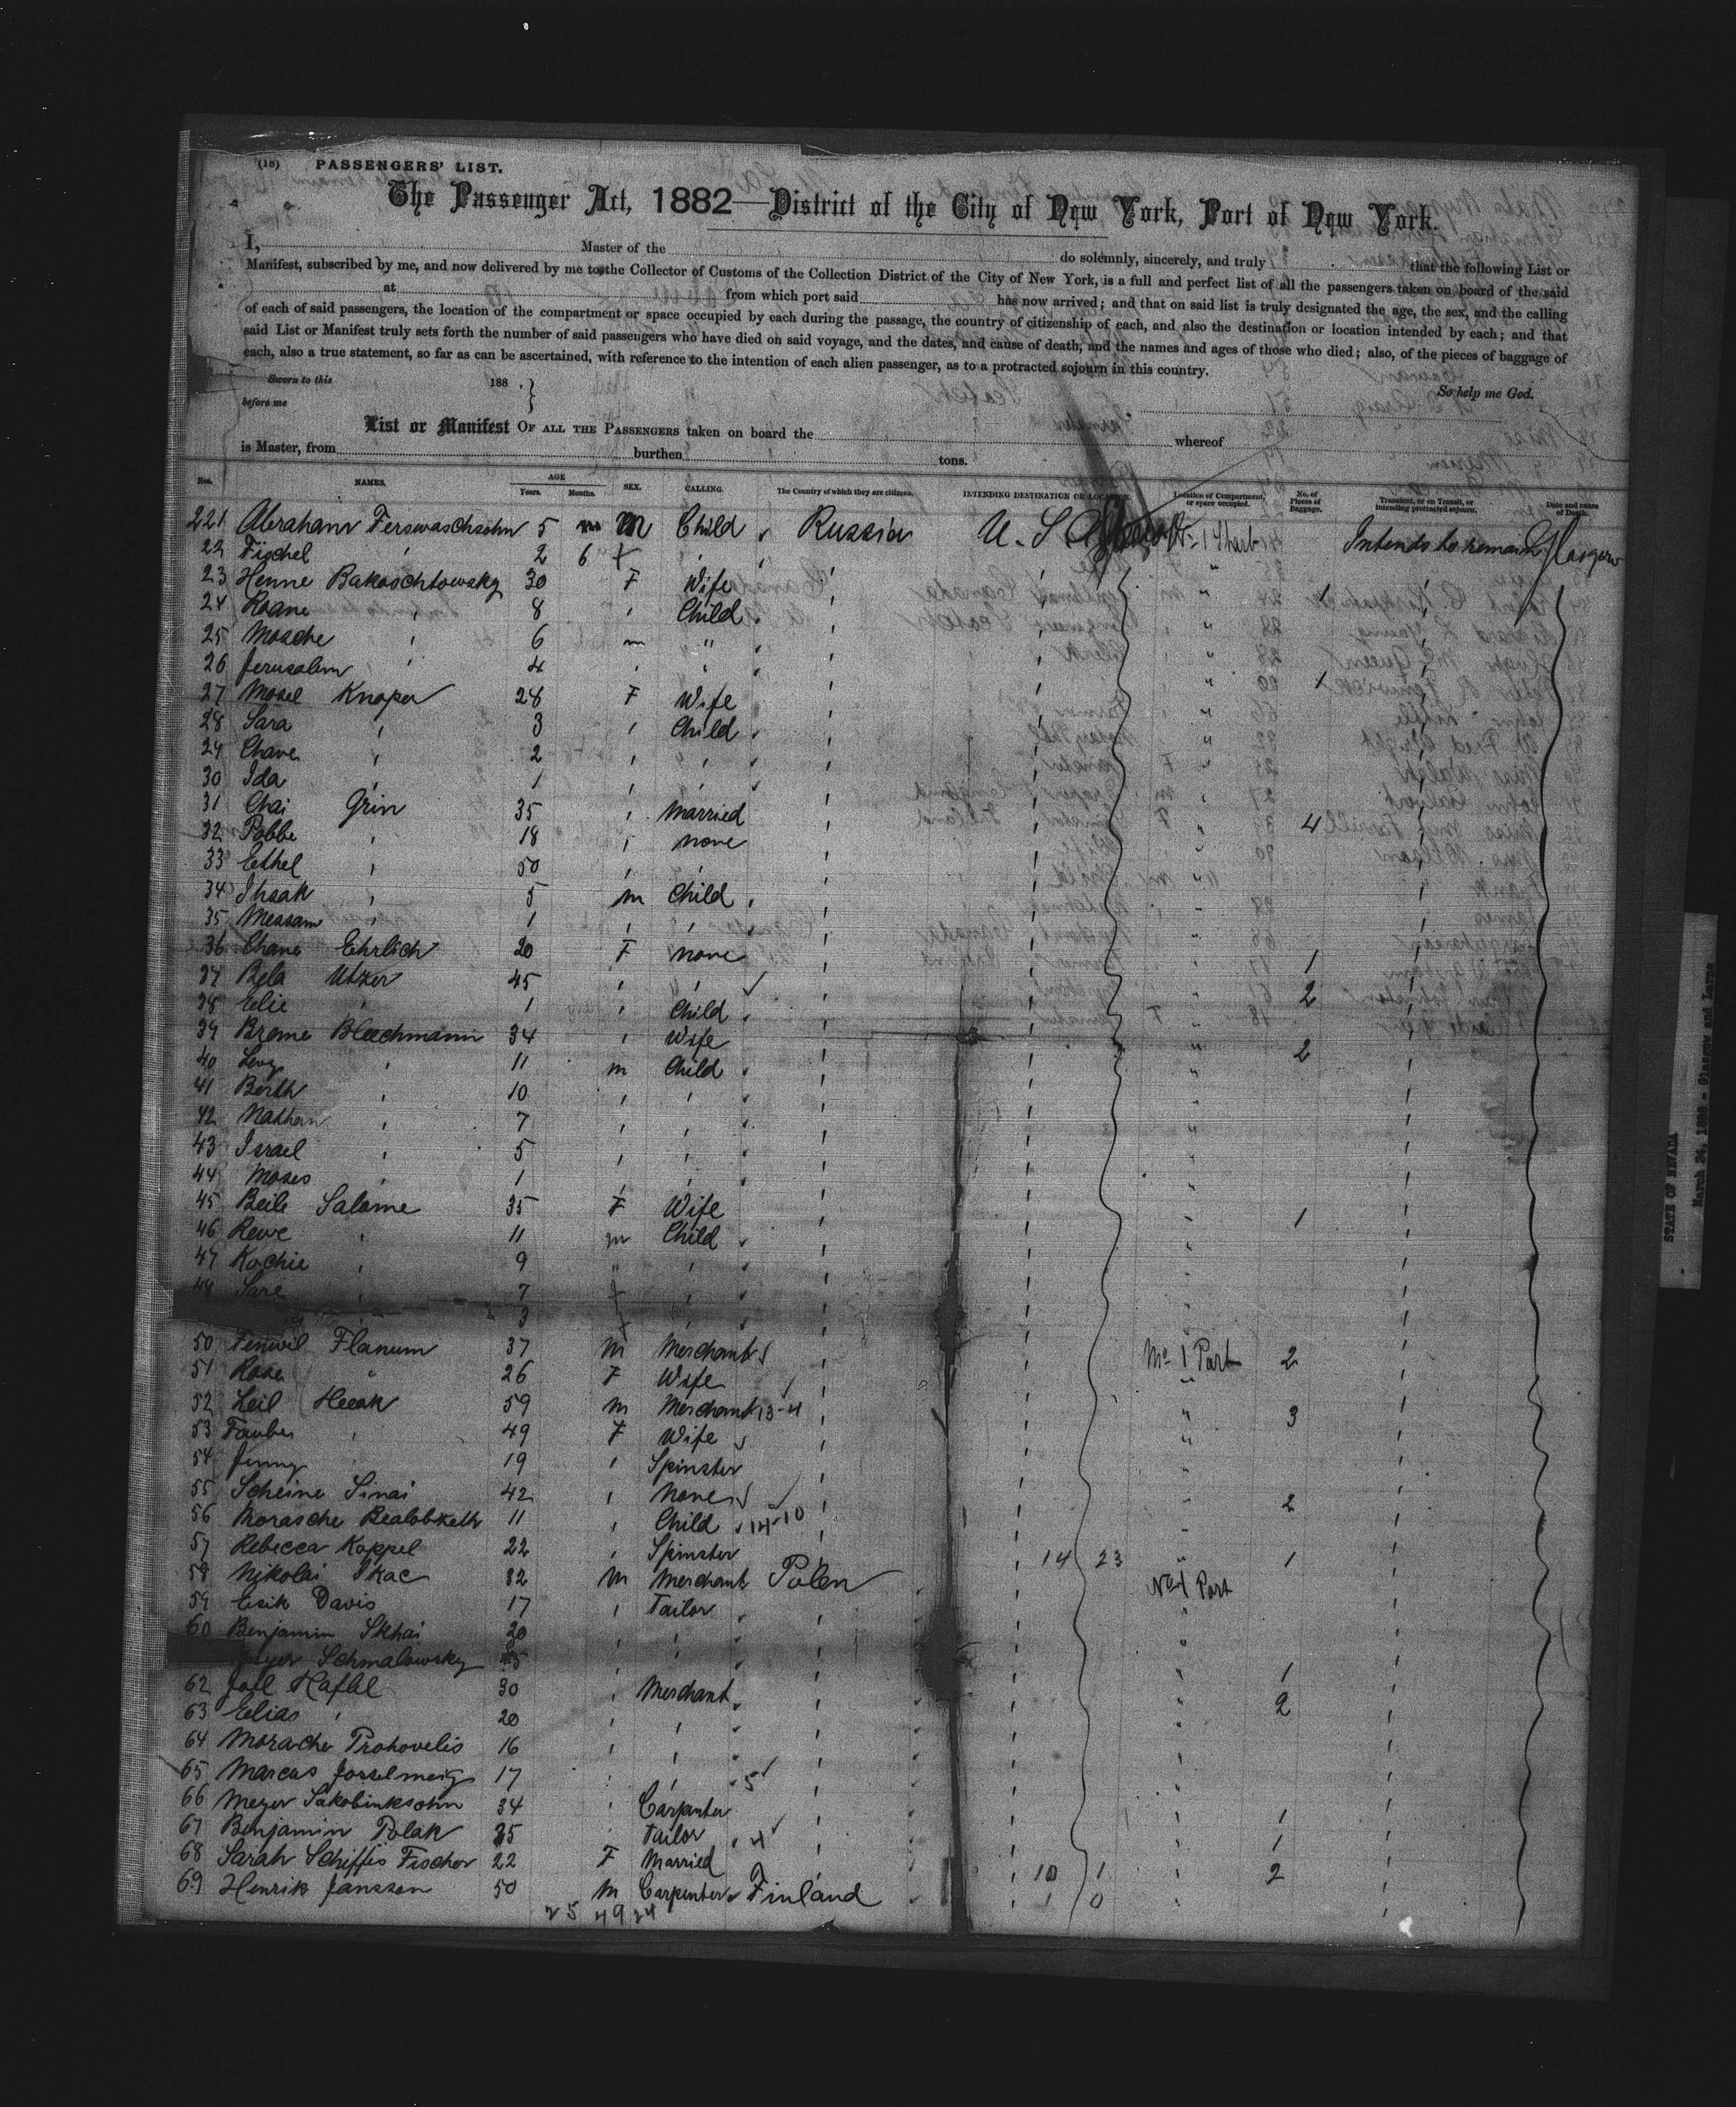 (18) PASSENGERS' LIST.
The Passenger Act, 1882—District of the City of New York, Port of New York.
I, Master of the do solemnly, sincerely, and truly that the following List or
Manifest, subscribed by me, and now delivered by me to the Collector of Customs of the Collection District of the City of New York, is a full and perfect list of all the passengers taken on board of the said
at from which port said has now arrived; and that on said list is truly designated the age, the sex, and the calling
of each of said passengers, the location of the compartment or space occupied by each during the passage, the country of citizenship of each, and also the destination or location intended by each; and that
said List or Manifest truly sets forth the number of said passengers who have died on said voyage, and the dates, and cause of death, and the names and ages of those who died; also, of the pieces of baggage of
each, also a true statement, so far as can be ascertained, with reference to the intention of each alien passenger, as to a protracted sojourn in this country.
Sworn to this 188 . } So help me God.
before me
List or Manifest OF ALL THE PASSENGERS taken on board the whereof
is Master, from burthen tons.
Nos. NAMES. AGE Years. Months. SEX. CALLING. The Country of which they are citizens. INTENDING DESTINATION OR LOCATION. Location of Compartment, or space occupied. No. of Pieces of Baggage. Transient, or on Transit, or intending protracted sojourn. Date and cause of Death.
221 Abraham Ferswaschsohn 5 m M Child Russia U. S. A 1 Intends to remain Glasgow
22 Fischel ' 2 6 '
23 Henne Bakoschtowsky 30 F Wife ' 1
24 Roane ' 8 ' Child '
25 Mosche ' 6 m " '
26 Jerusalem ' 4 ' " '
27 Mosel Knoper 28 F Wife ' 1
28 Sara ' 3 ' Child '
29 Chave ' 2 ' ' '
30 Ida ' 1 ' ' '
31 Chai Grin 35 ' Married ' 4
32 Pabbe ' 18 ' none '
33 Ethel ' 50 ' ' '
34 Ihsak ' 5 m Child '
35 Messam ' 1 ' ' '
36 Chane Ehrlich 20 F none ' 1
37 Bela Utzer 45 ' ' ' 2
38 Elie ' 1 ' Child '
39 Brome Blechmann 34 ' Wife ' 2
40 Levy ' 11 m Child '
41 Berth ' 10 ' ' '
42 Nathan ' 7 ' ' '
43 Israel ' 5 ' ' '
44 Moses ' 1 ' ' '
45 Beile Salome 35 F Wife ' 1
46 Rewe ' 11 m Child '
47 Kochie ' 9 " ' '
48 Sare ' 7 ' '
3
50 Flanum 37 M Merchant ' No 1 Part 2
51 Rosa " 26 F Wife ' "
52 Leil Heeak 59 m Merchant 13-4 ' " 3
53 Tauber ' 49 F Wife ' "
54 Jenny ' 19 ' Spinster '
55 Scheine Sinai 42 ' None ' 2
56 Morasche 11 ' Child 14-10 '
57 Rebecca Koppel 22 ' Spinster ' 14 23 " 1
58 Nikolai Skac 32 M Merchant Polen No 1 Part
59 Esik Davis 17 ' Tailor '
60 Benjamin Skhai 20 ' ' '
Schmalowsky ' ' ' 1
62 Joel Haflel 30 ' Merchant ' 2
63 Elias ' 20 ' ' '
64 Morache Prohovelis 16 ' ' '
65 Marcus Josselmeig 17 ' ' 5 '
66 Meyer Sakobinksohn 34 ' Carpenter ' 1
67 Benjamin Polak 35 Tailor 4 ' 1
68 Sarah Schiffis Fischer 22 F Married ' 10 1 2
69 Henrik Janssen 50 M Carpenter Finland 1 0
25 49 24
STATE OF NEVADA
March 24, 1886 - Glasgow and Larne